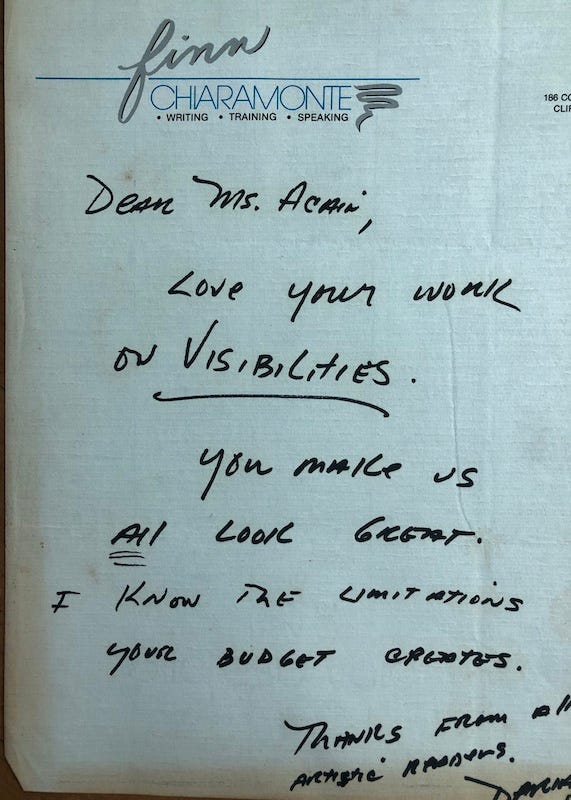 finn
CHIARAMONTE
• WRITING • TRAINING • SPEAKING
186 CO
CLIF
Dear Ms.
Love your work
on VISIBILITIES.
You make us
All look great.
I know the limitations
your budget creates.
Thanks from all
artistic readers.